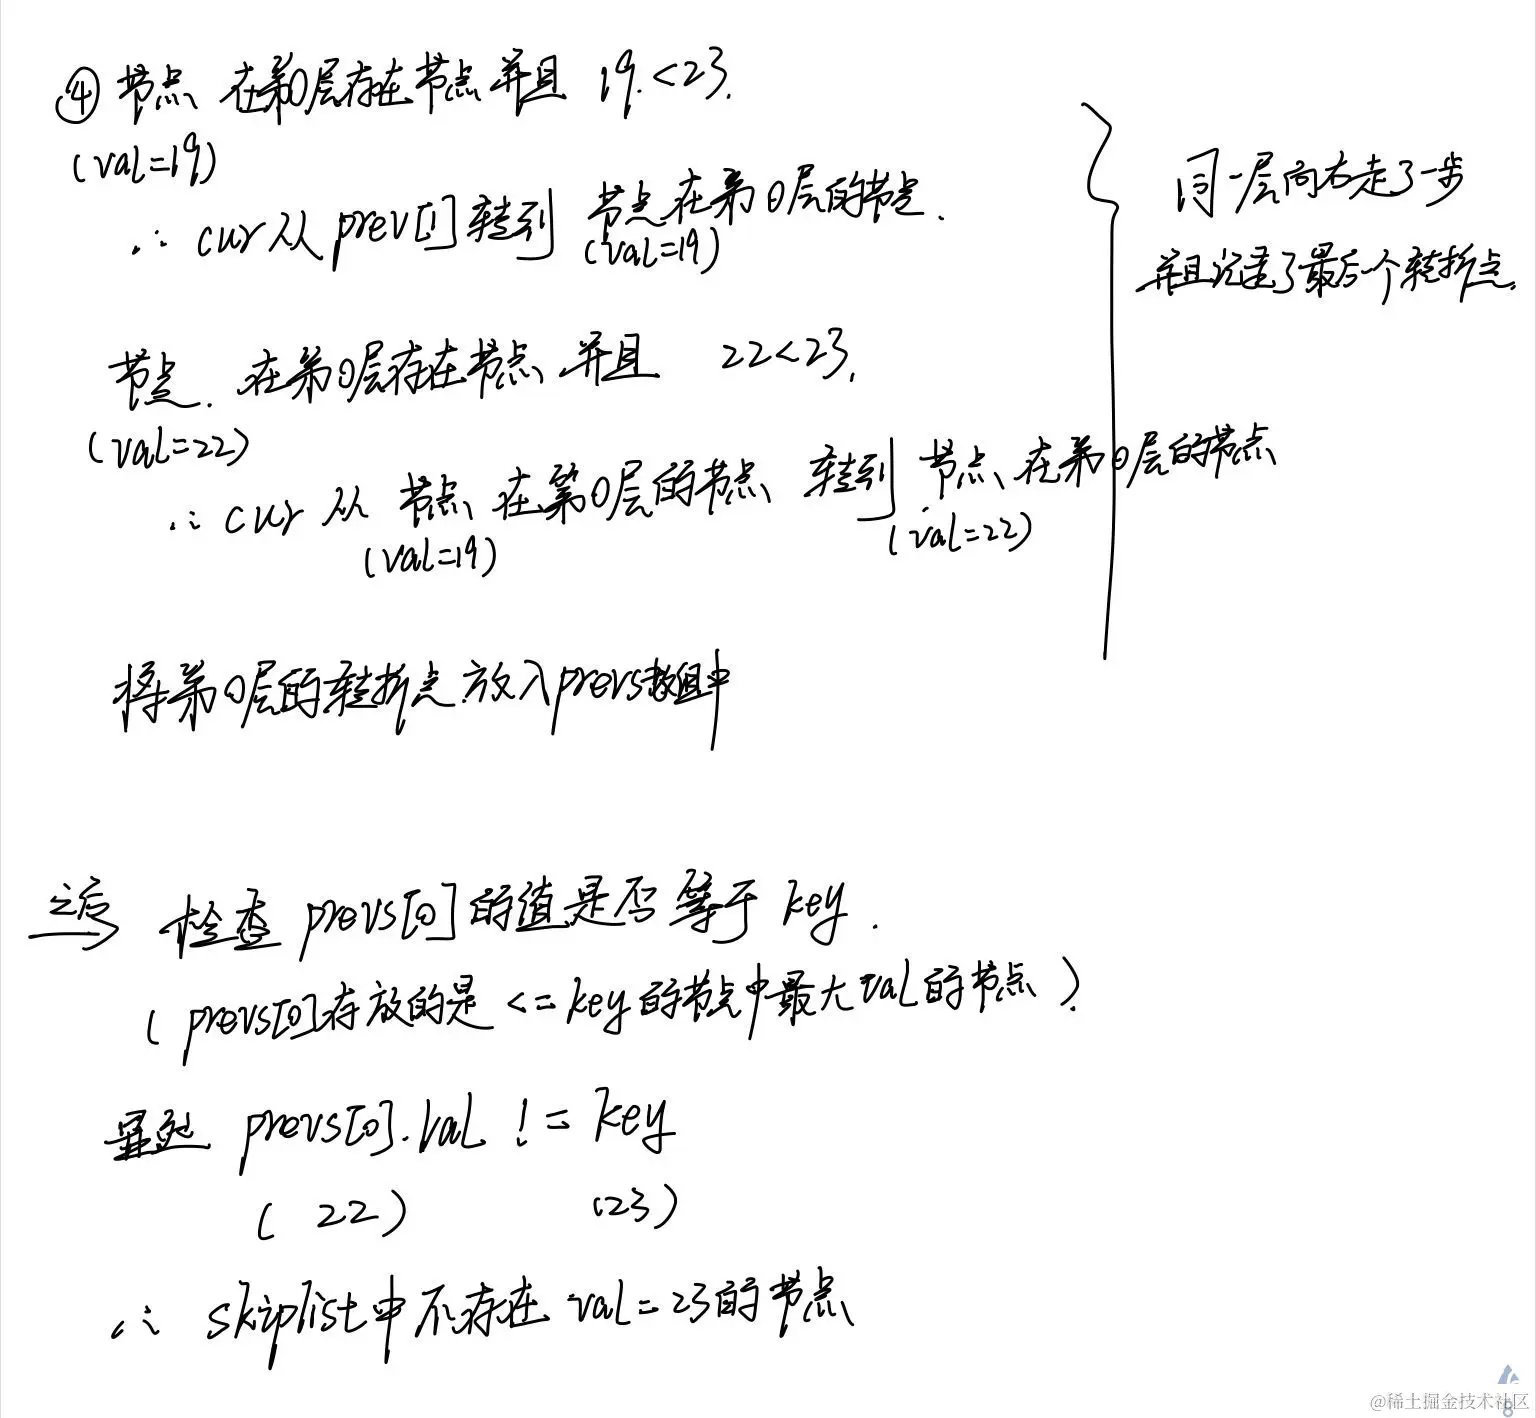 ④ 节点 在第0层存在节点 并且 19<23.
(val=19)
∴ cur从prev[1]转到 节点在第0层的节点.
(val=19)
同一层向右走了一步
并且记录了最后一个转折点.
节点. 在第0层存在节点 并且 22<23.
(val=22)
∴ cur 从 节点 在第0层的节点 转到 节点 在第0层的节点
(val=19) (val=22)
将第0层的转折点放入prevs数组中
之后 检查 prevs[0]的值是否等于key.
(prevs[0]存放的是 <=key的节点中最大val的节点)
显然 prevs[0].val != key
(22) (23)
∴ skiplist中不存在 val=23的节点
@稀土掘金技术社区
8